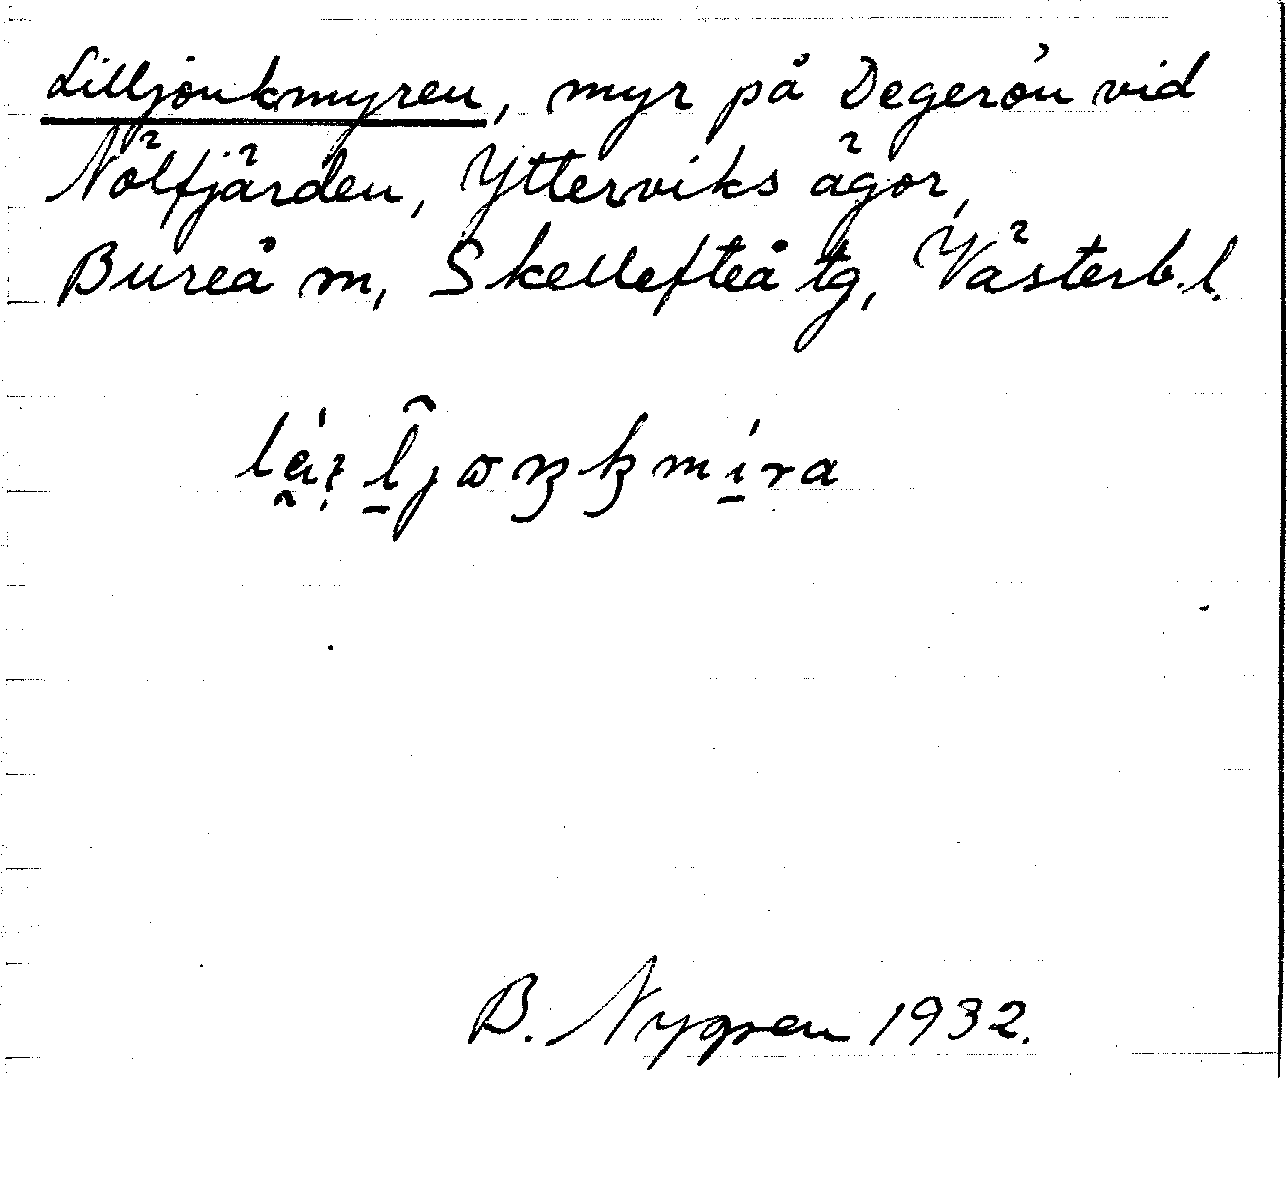 Lilljonkmyren, myr på Degerön vid
Nölfjärden, Ytterviks ägor,
Bureå sn, Skellefteå tg, Västerb.l.
B. Nygren 1932.